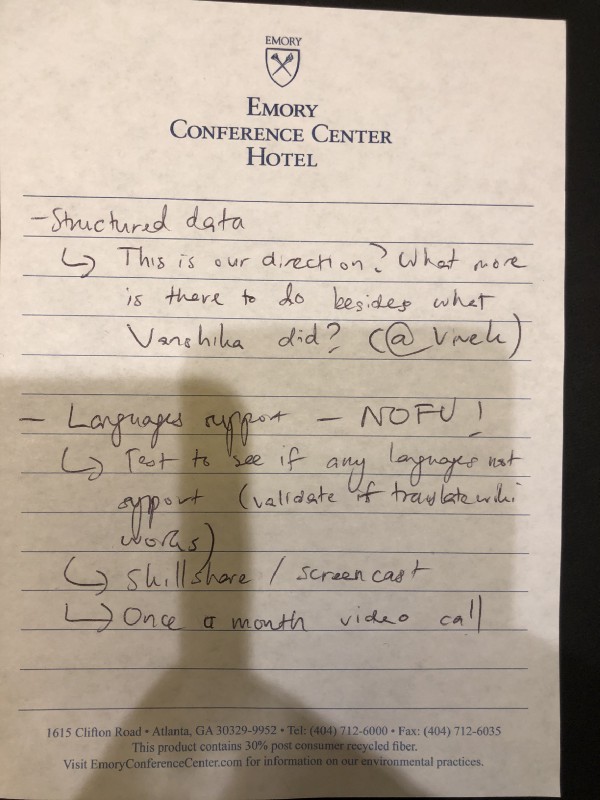 EMORY
EMORY
CONFERENCE CENTER
HOTEL
- Structured data
↳ This is our direction? What more
is there to do besides what
Vanshika did? (@ Vivek)
- Languages support - NOFU!
↳ Test to see if any languages not
support (validate if translatewiki
works)
↳ Skillshare / screencast
↳ Once a month video call
1615 Clifton Road • Atlanta, GA 30329-9952 • Tel: (404) 712-6000 • Fax: (404) 712-6035
This product contains 30% post consumer recycled fiber.
Visit EmoryConferenceCenter.com for information on our environmental practices.